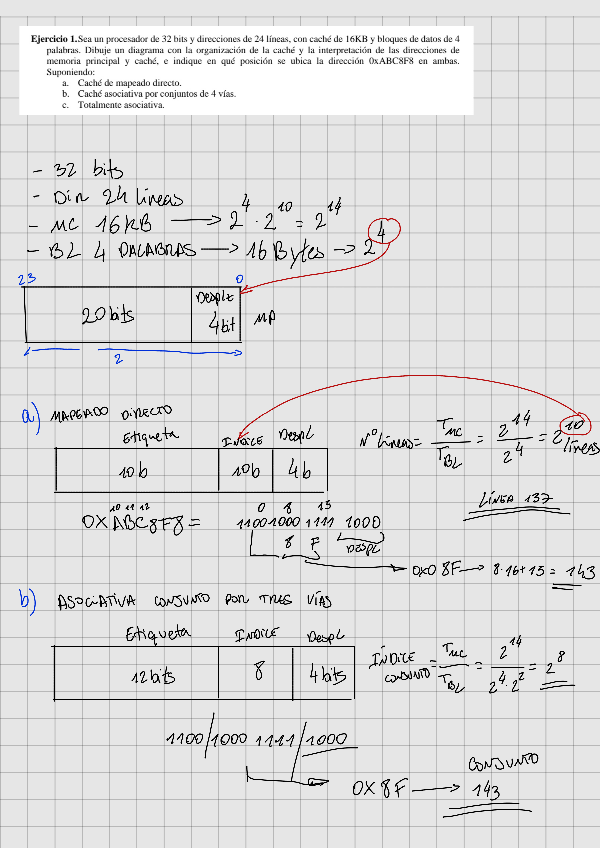 Ejercicio 1. Sea un procesador de 32 bits y direcciones de 24 líneas, con caché de 16KB y bloques de datos de 4
palabras. Dibuje un diagrama con la organización de la caché y la interpretación de las direcciones de
memoria principal y caché, e indique en qué posición se ubica la dirección 0xABC8F8 en ambas.
Suponiendo:
a. Caché de mapeado directo.
b. Caché asociativa por conjuntos de 4 vías.
c. Totalmente asociativa.
- 32 bits
- Dir 24 líneas
- MC 16KB → 2^4 · 2^10 = 2^14
- BL 4 PALABRAS → 16 Bytes → 2^4
23 0
20 bits Desplz 4bit MP
2
a) MAPEADO DIRECTO
Etiqueta INDICE Despl
10b 10b 4b
Nº líneas = T_MC / T_BL = 2^14 / 2^4 = 2^10 líneas
LÍNEA 137
10 11 12 0 8 15
0XABC8F8 = 1100 1000 1111 1000
8 F DESPL
0x08F → 8·16+15 = 143
b) ASOCIATIVA CONJUNTO POR TRES VÍAS
Etiqueta INDICE Despl
12 bits 8 4 bits
ÍNDICE CONJUNTO = T_MC / T_BL = 2^14 / 2^4·2^2 = 2^8
1100/1000 1111/1000
0X8F → CONJUNTO 143